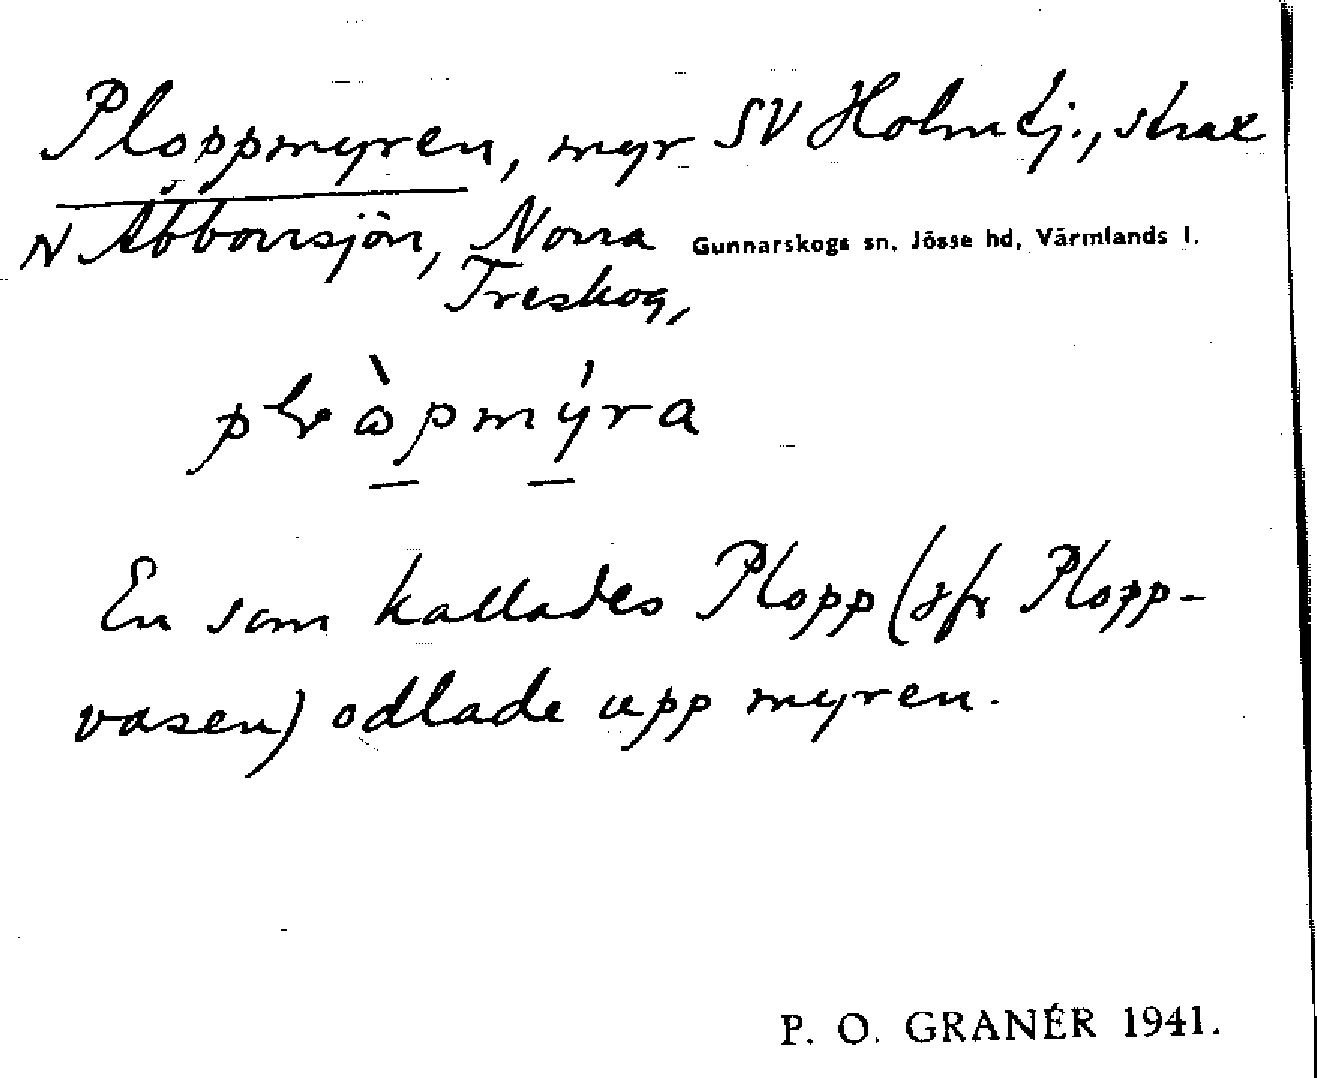 Ploppmyren, myr SV Holmtj., strax
N Abborrsjön, Norra Gunnarskogs sn, Jösse hd, Värmlands l.
Treskog,
En som kallades Plopp (jfr Plopp-
vasen) odlade upp myren.
P. O. GRANÉR 1941.